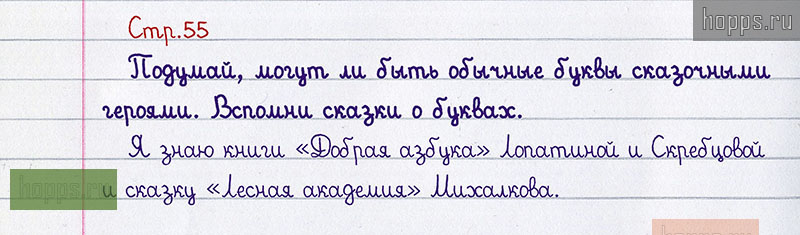 hopps.ru
Стр.55
Подумай, могут ли быть обычные буквы сказочными
героями. Вспомни сказки о буквах.
Я знаю книги «Добрая азбука» Лопатиной и Скребцовой
и сказку «Лесная академия» Михалкова.
hopps.ru